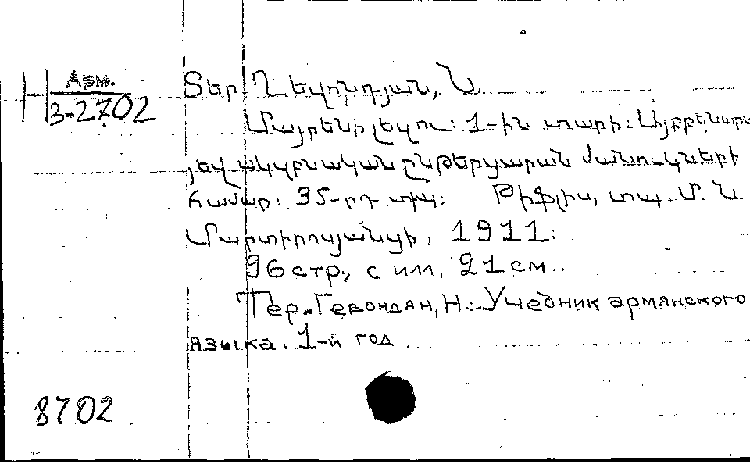 Арм.
3-2702
Տեր Ղևոնդյան, Ն.
Մայրենի լեզու: 1-ին տարի: Այբբենարան
և սկզբնական ընթերցարան մանուկների
համար: 35-րդ տպ: Թիֆլիս, տպ. Մ. Ն.
Մարտիրոսյանցի, 1911:
96 стр., с илл. 21 см.
Тер-Гевондян, Н.: Учебник армянского
языка. 1-й год.
8702